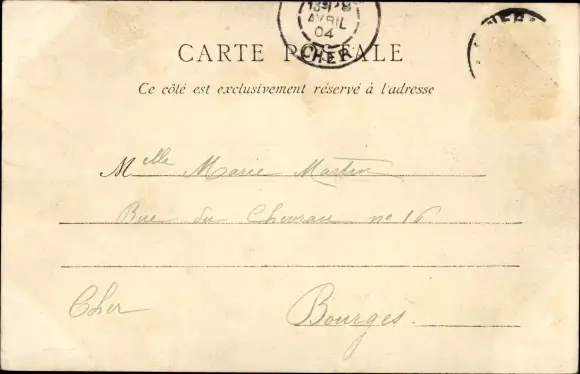 13 8
AVRIL
04
CHER
CHER
CARTE POSTALE
Ce côté est exclusivement réservé à l'adresse
Melle Marie Martin
Rue du no 16
Cher Bourges